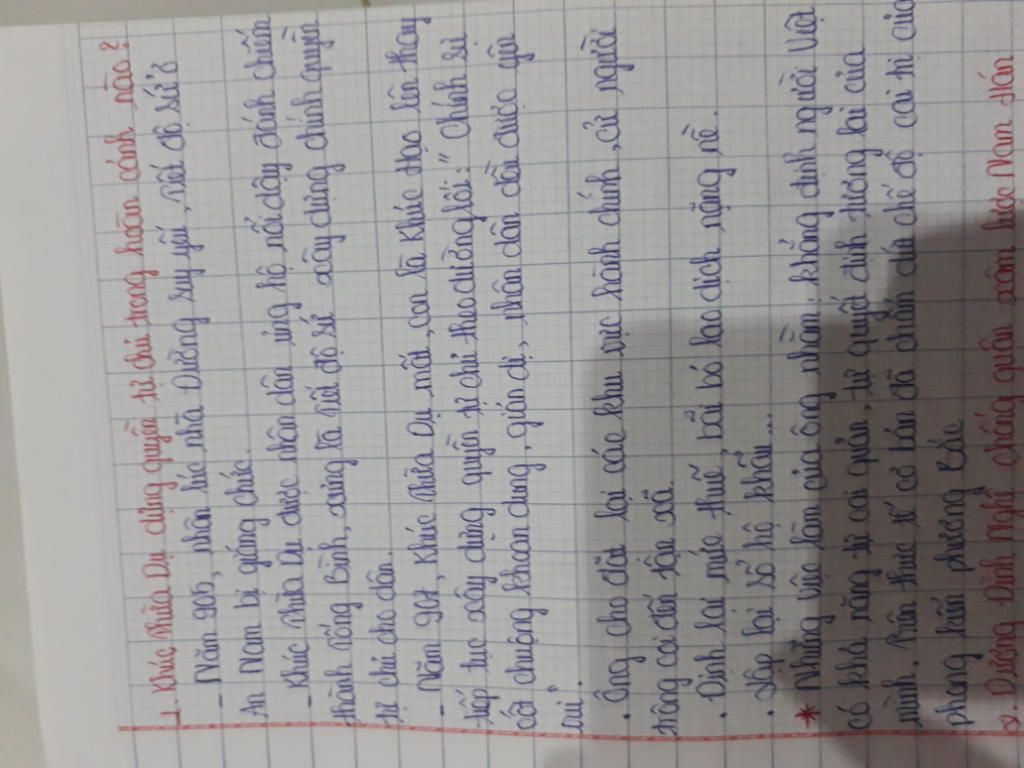 1. Khúc Thừa Dụ dựng quyền tự chủ trong hoàn cảnh nào?
- Năm 905, nhân lúc nhà Đường suy yếu, Tiết độ sứ
An Nam bị giáng chức.
- Khúc Thừa Dụ được nhân dân ủng hộ nổi dậy đánh chiếm
thành Tống Bình, xưng là Tiết độ sứ xây dựng chính quyền
tự chủ cho dân.
- Năm 907, Khúc Thừa Dụ mất, con là Khúc Hạo lên thay
tiếp tục xây dựng quyền tự chủ theo đường lối: "Chính sự
cốt chuộng khoan dung, giản dị, nhân dân đều được yên
vui".
. Ông cho đặt lại các khu vực hành chính, cử người
trông coi đến tận xã.
. Định lại mức thuế, bãi bỏ lao dịch nặng nề.
. Lập lại sổ hộ khẩu...
* Những việc làm của ông nhằm: khẳng định người Việt
có khả năng tự cai quản, tự quyết định tương lai của
mình. Trên thực tế cơ bản đã chấm dứt chế độ cai trị của
phong kiến phương Bắc
2. Dương Đình Nghệ chống quân xâm lược Nam Hán